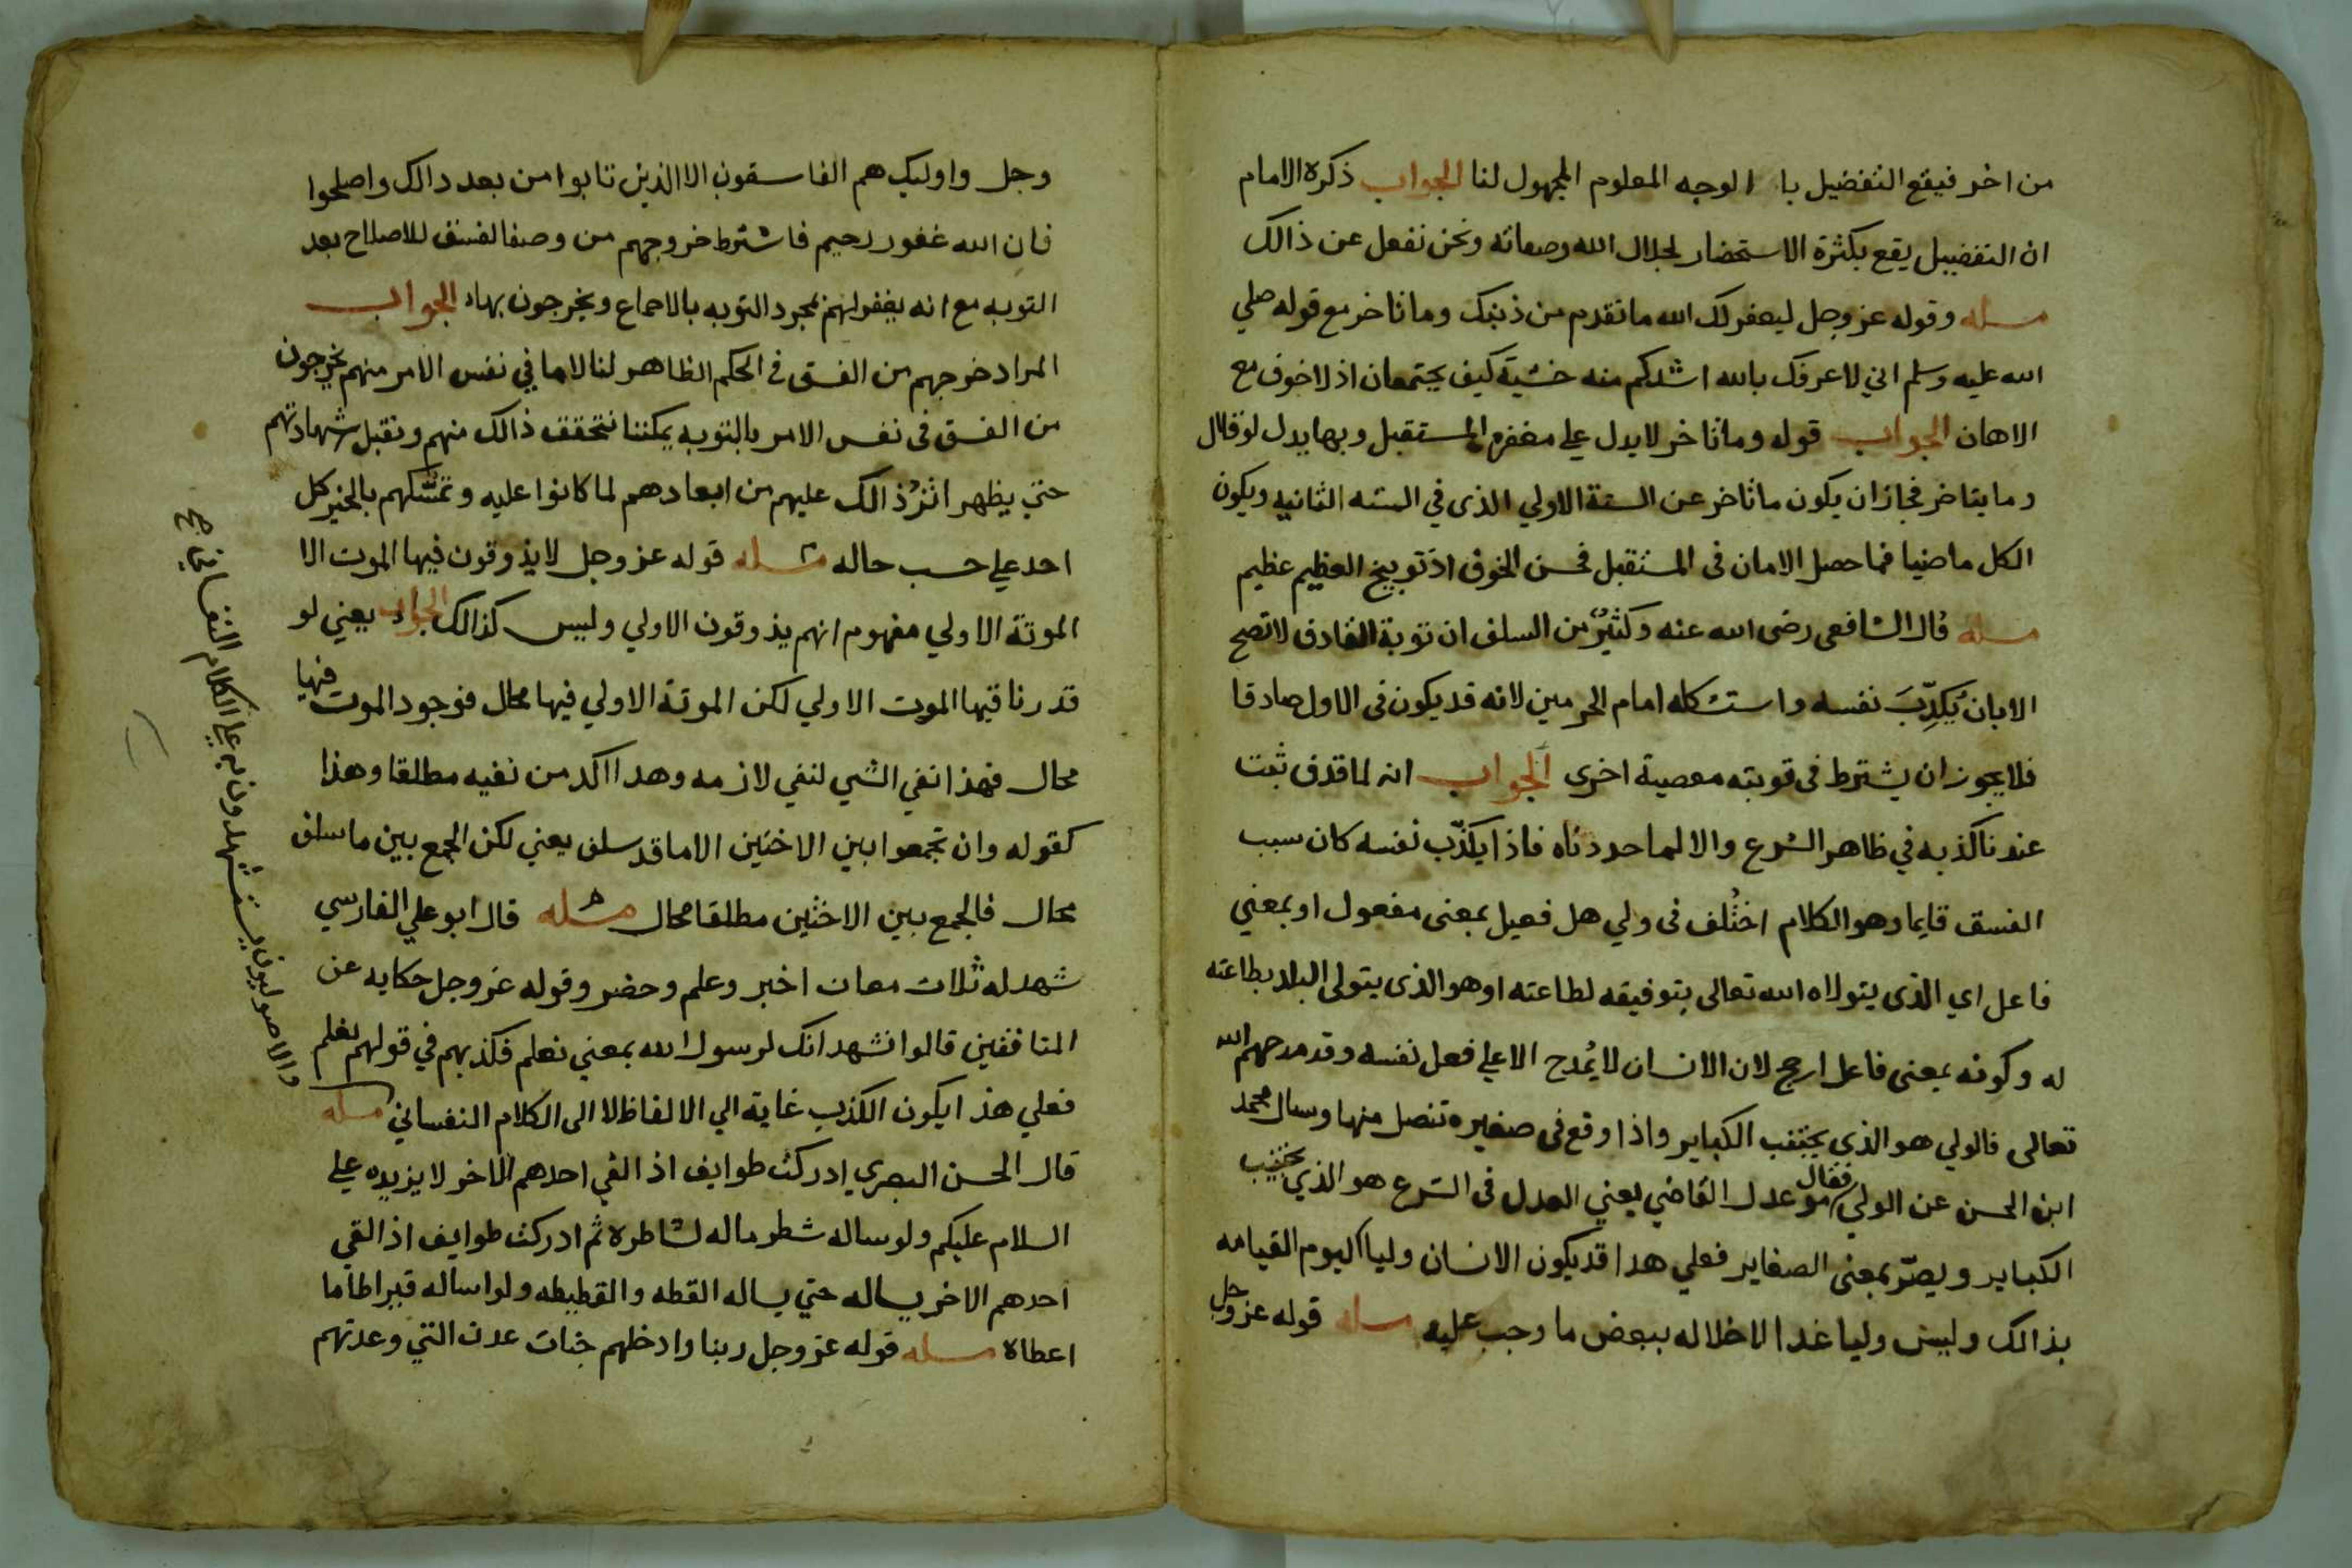 من اخر فيقع التفضيل با الوجه المعلوم المجهول لنا الجواب ذكره الامام
ان التفضييل يقع بكثرة الاستحضار لجلال الله وصفاته ونحن نفعل عن ذالك
مسله وقوله عز وجل ليغفر لك الله ما تقدم من ذنبك وما تاخر مع قوله صلي
الله عليه وسلم اني لاعرفك بالله اشدكم منه خشية كيف يجتمعان اذ لا خوف مع
الاهان الجواب قوله وما تاخر لا يدل علي مغفره المستقبل وبها يدل لو قال
وما يتاخر فجاز ان يكون ما تاخر عن السنة الاولي الذى في السنه الثانيه ويكون
الكل ماضيا فما حصل الامان فى المستقبل فحسن الخوف اذ توبيخ العظيم عظيم
مسله قال الشافعى رضى الله عنه وكثيرٌ من السلف ان توبة القاذف لا تصح
الا بان يُكذِّبَ نفسه واستشكاه امام الحرمين لانه قد يكون فى الاول صادقا
فلا يجوز ان يشترط فى توبته معصية اخرى الجواب انه لما قذف ثبت
عندنا كذبه في ظاهر الشرع والا لما حددناه فاذا يكذّب نفسه كان سبب
الفسق قايما وهو الكلام اختُلف فى ولي هل فعيل بمعنى مفعول او بمعني
فاعل اي الذى يتولاه الله تعالى بتوفيقه لطاعته او هو الذى يتولى البلد بطاعته
له وكونه بمعنى فاعل ارجح لان الانسان لا يُمدح الا علي فعل نفسه وقد مدحهم الله
تعالى فالولي هو الذي يجتنب الكباير واذا وقع فى صغيره تنصل منها وسال محمد
ابن الحسن عن الولي فقال هو عدل القاضي يعني العدل فى الشرع هو الذي يجتنب
الكباير ويصرّ بمعنى الصغاير فعلي هدا قد يكون الانسان وليا اليوم القيامه
بذالك وليس وليا غدا لاخلاله ببعض ما وجب عليه مسله قوله عز وجل
وجل واوليك هم الفاسقون الا الذين تابوا من بعد دالك واصلحوا
فان الله غفور رحيم فاشترط خروجهم من وصف الفسق للاصلاح بعد
التوبه مع انه يغفر لهم بمجرد التوبه بالاجماع ويخرجون بها الجواب
المراد خرجهم من الفسق فى الحكم الظاهر لنا لا ما في نفس الامر منهم يخرجون
من الفسق فى نفس الامر بالتوبه يمكننا نتحقق ذالك منهم ونقبل شهادتهم
حتي يظهر اثرُ ذالك عليهم من ابعادهم لما كانوا عليه وتمسّكهم بالخير كل
احد علي حسب حاله مسله قوله عز وجل لا يذوقون فيها الموت الا
الموتة الاولي مفهوم انهم يذوقون الاولي وليس كذالك الجواب يعني لو
قدرنا فيها الموت الاولي لكن الموتة الاولي فيها محال فوجود الموت فيها
محال فهذا نفي الشي لنفي لازمه وهدا اكد من نفيه مطلقا وهذا
كقوله وان تجمعوا بين الاختين الا ما قد سلف يعني لكن الجمع بين ما سلف
محال فالجمع بين الاختين مطلقا محال مسله قال ابو علي الفارسي
شهد له ثلاث معان اخبر وعلم وحضر وقوله عز وجل حكايه عن
المنافقين قالوا نشهد انك لرسول الله بمعني نعلم فكذبهم في قولهم نعلم
فعلي هذا يكون الكذب غاية الي الالفاظ لا الى الكلام النفساني مسله
قال الحسن البصري ادركت طوايف اذ القي احدهم الاخر لا يزيده علي
السلام عليكم ولو ساله شطر ماله لشاطره ثم ادركت طوايف اذ القي
احدهم الاخر يساله حتي يساله القطه والقطيطه ولو اساله قيراطا ما
اعطاه مسله قوله عز وجل ربنا وادخلهم جنات عدن التي وعدتهم
والاصوليون يستشهدون به علي الكلام النفساني صح